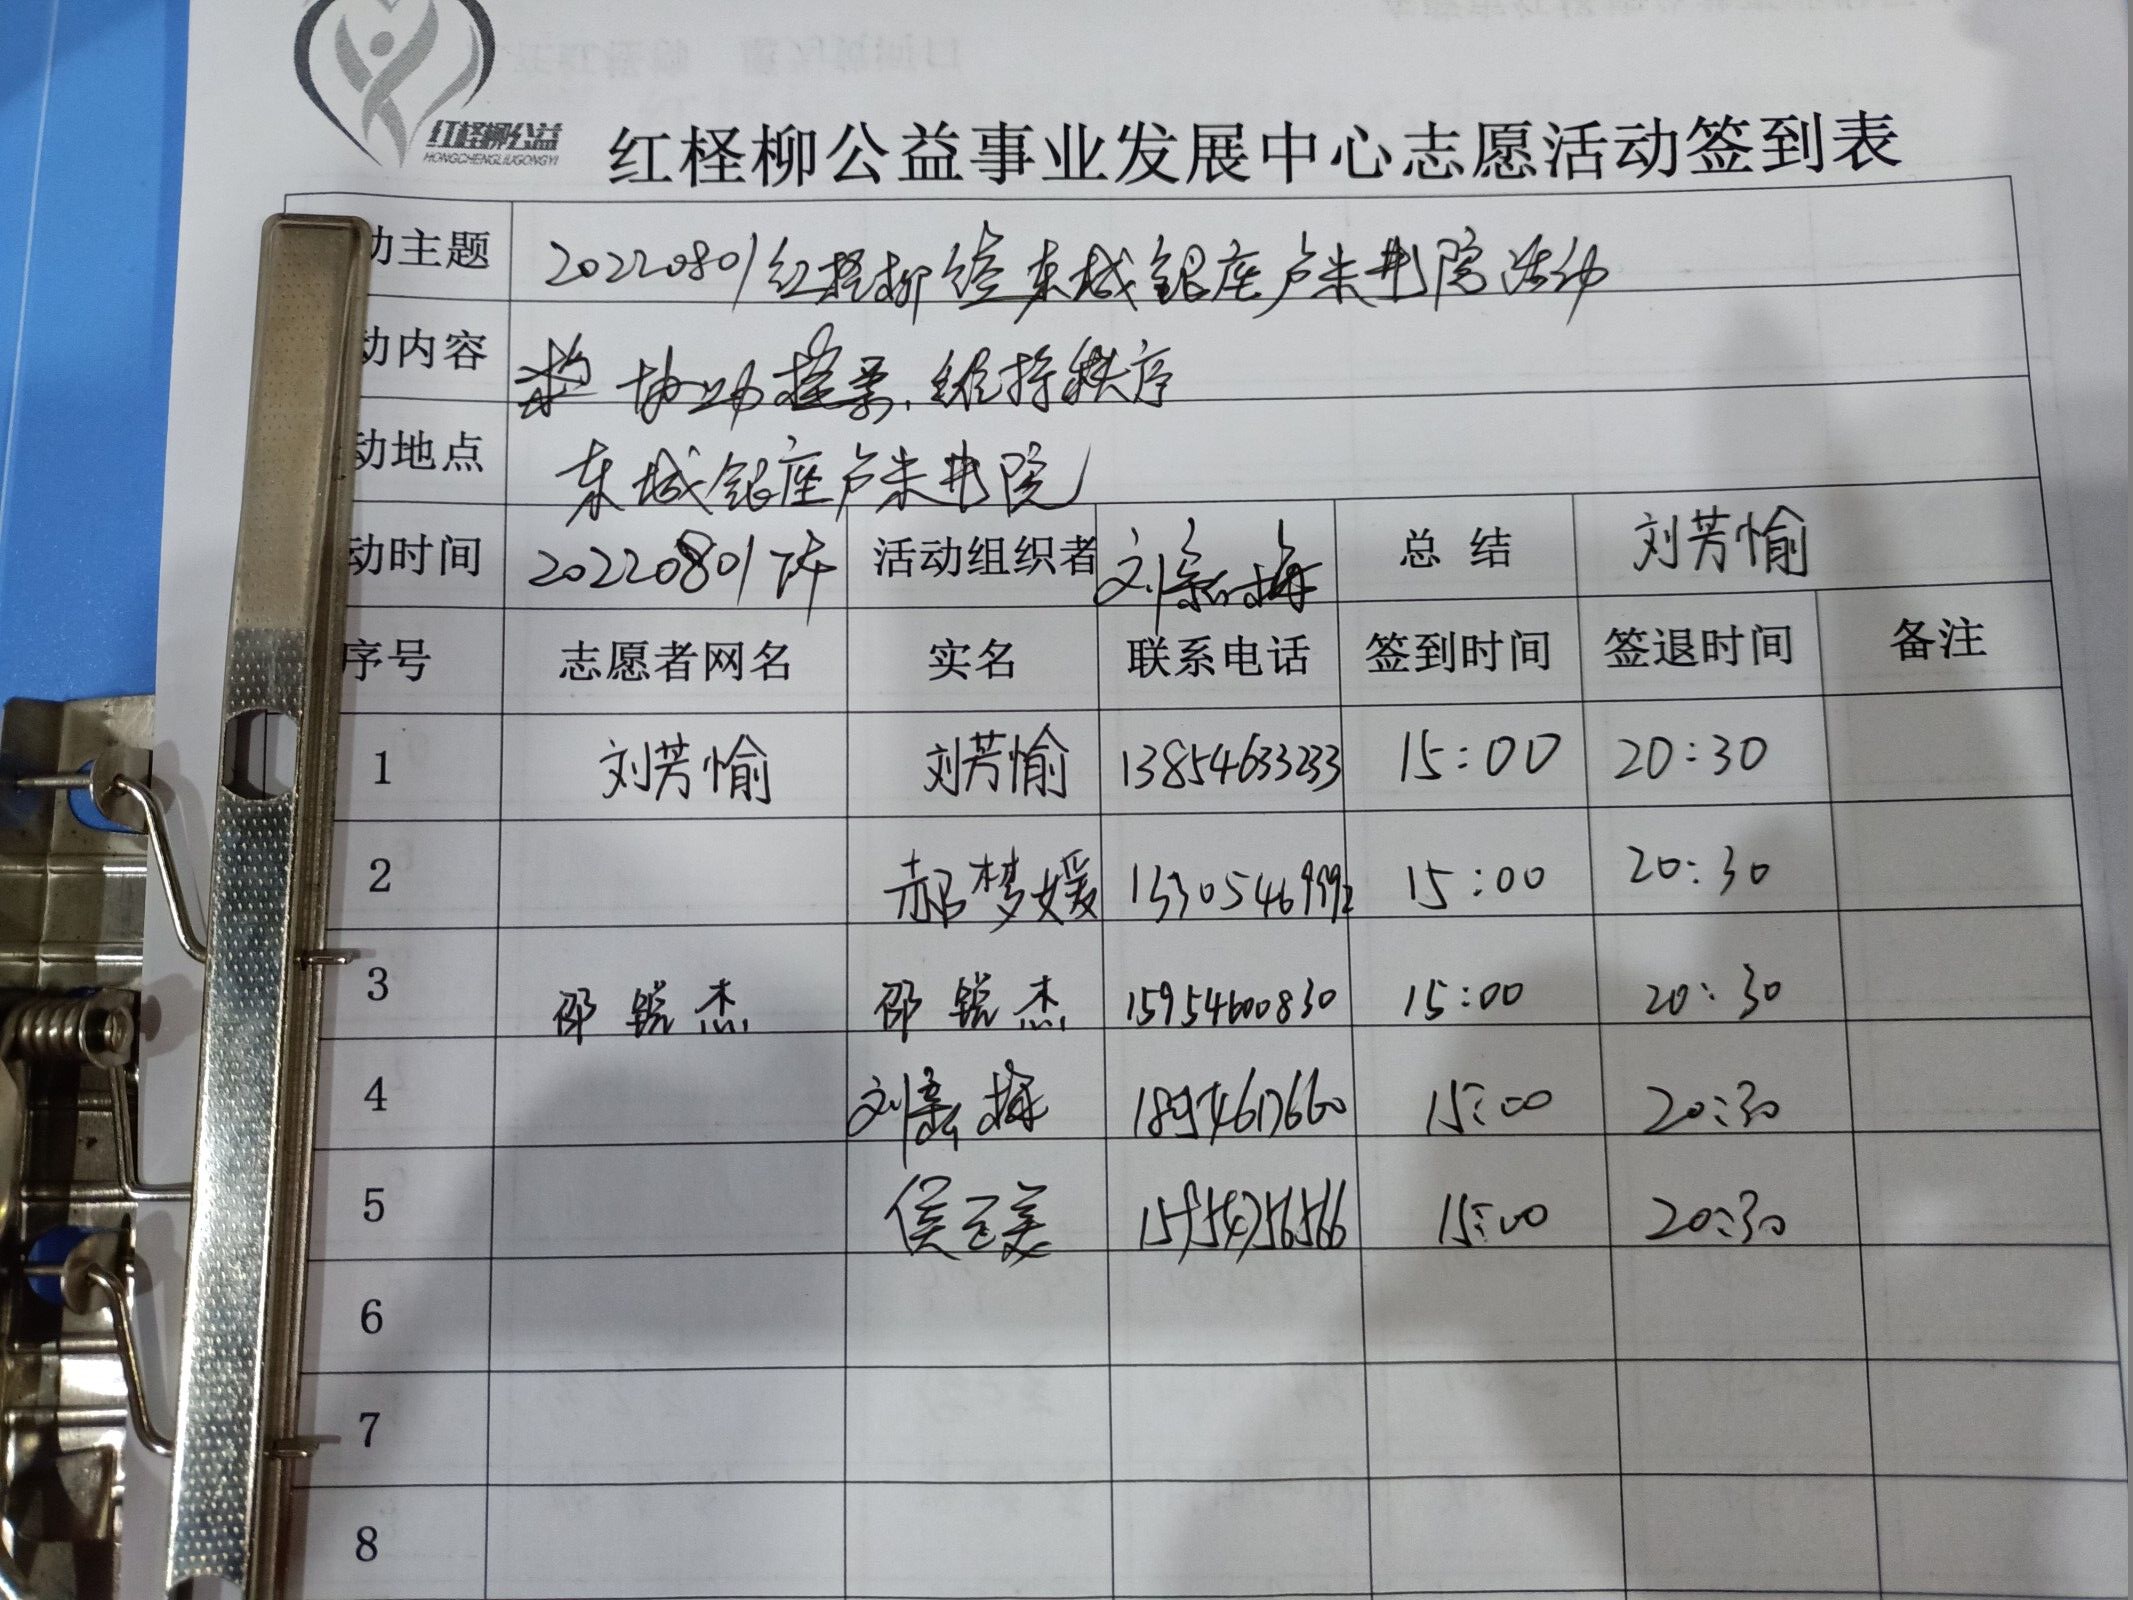 红柽柳公益
HONGCHENGLIUGONGYI
红柽柳公益事业发展中心志愿活动签到表
动主题 20220801红柽柳 东城银座卢米书院活动
动内容 协助 维持秩序
动地点 东城银座卢米书院
动时间 20220801下午 活动组织者 刘 梅 总结 刘芳愉
序号 志愿者网名 实名 联系电话 签到时间 签退时间 备注
1 刘芳愉 刘芳愉 13854633233 15:00 20:30
2 郝梦媛 15:00 20:30
3 邵锐杰 邵锐杰 15954600830 15:00 20:30
4 刘 梅 15:00 20:30
5 侯 美 15:00 20:30
6
7
8